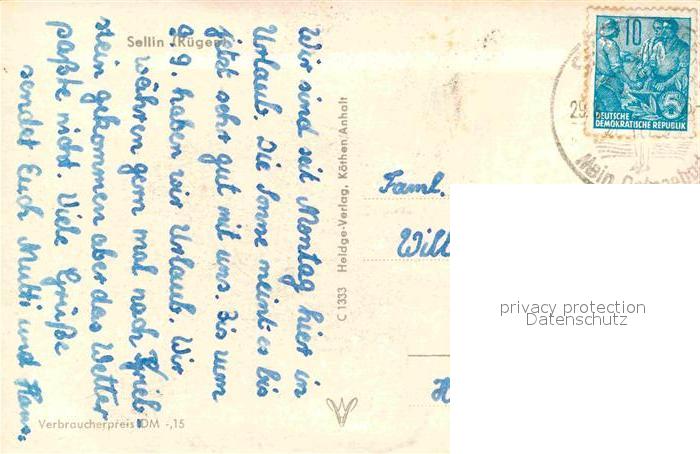 Sellin (Rügen)
Wir sind seit Montag hier in
Urlaub. Die Sonne meint es bis
jetzt sehr gut mit uns. Bis zum
a. g. haben wir Urlaub. Wir
wären gern mal nach
stein gekommen aber das Wetter
paßte nicht. Viele Grüße
sendet Euch Mutti und Hans.
Verbraucherpreis DM -,15
C 1333 Heldge-Verlag, Köthen/Anhalt
10
5
DEUTSCHE
DEMOKRATISCHE REPUBLIK
29.
Mein
Faml.
Will
H
privacy protection
Datenschutz